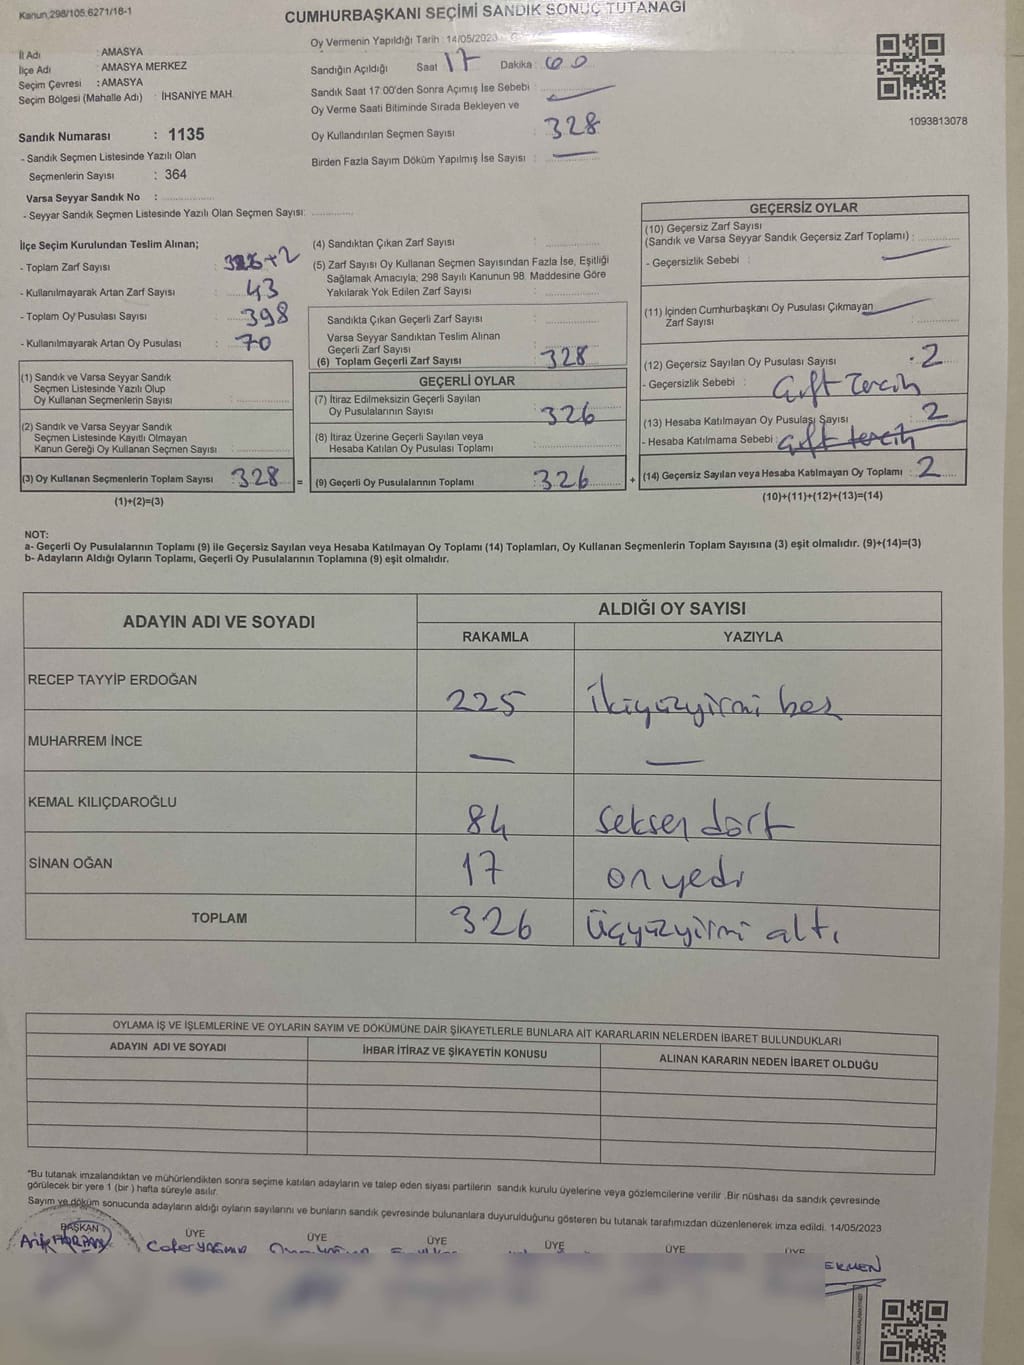 Kanun 298/105.6271/18-1
CUMHURBAŞKANI SEÇİMİ SANDIK SONUÇ TUTANAĞI
İl Adı : AMASYA
İlçe Adı : AMASYA MERKEZ
Seçim Çevresi : AMASYA
Seçim Bölgesi (Mahalle Adı) : İHSANİYE MAH.
Sandık Numarası : 1135
- Sandık Seçmen Listesinde Yazılı Olan
Seçmenlerin Sayısı : 364
Varsa Seyyar Sandık No :
- Seyyar Sandık Seçmen Listesinde Yazılı Olan Seçmen Sayısı:
Oy Vermenin Yapıldığı Tarih : 14/05/2023
Sandığın Açıldığı Saat 17 Dakika 00
Sandık Saat 17:00'den Sonra Açımış İse Sebebi :
Oy Verme Saati Bitiminde Sırada Bekleyen ve
Oy Kullandırılan Seçmen Sayısı : 328
Birden Fazla Sayım Döküm Yapılmış İse Sayısı :
1093813078
İlçe Seçim Kurulundan Teslim Alınan;
- Toplam Zarf Sayısı : +2
- Kullanılmayarak Artan Zarf Sayısı : 43
- Toplam Oy Pusulası Sayısı : 398
- Kullanılmayarak Artan Oy Pusulası : 70
(1) Sandık ve Varsa Seyyar Sandık
Seçmen Listesinde Yazılı Olup
Oy Kullanan Seçmenlerin Sayısı :
(2) Sandık ve Varsa Seyyar Sandık
Seçmen Listesinde Kayıtlı Olmayan
Kanun Gereği Oy Kullanan Seçmen Sayısı :
(3) Oy Kullanan Seçmenlerin Toplam Sayısı : 328 =
(1)+(2)=(3)
(4) Sandıktan Çıkan Zarf Sayısı :
(5) Zarf Sayısı Oy Kullanan Seçmen Sayısından Fazla İse, Eşitliği
Sağlamak Amacıyla; 298 Sayılı Kanunun 98. Maddesine Göre
Yakılarak Yok Edilen Zarf Sayısı :
Sandıkta Çıkan Geçerli Zarf Sayısı :
Varsa Seyyar Sandıktan Teslim Alınan
Geçerli Zarf Sayısı :
(6) Toplam Geçerli Zarf Sayısı : 328
GEÇERLİ OYLAR
(7) İtiraz Edilmeksizin Geçerli Sayılan
Oy Pusulalarının Sayısı : 326
(8) İtiraz Üzerine Geçerli Sayılan veya
Hesaba Katılan Oy Pusulası Toplamı :
(9) Geçerli Oy Pusulalarının Toplamı : 326 +
GEÇERSİZ OYLAR
(10) Geçersiz Zarf Sayısı
(Sandık ve Varsa Seyyar Sandık Geçersiz Zarf Toplamı) :
- Geçersizlik Sebebi :
(11) İçinden Cumhurbaşkanı Oy Pusulası Çıkmayan
Zarf Sayısı :
(12) Geçersiz Sayılan Oy Pusulası Sayısı : 2
- Geçersizlik Sebebi : Çift Tercih
(13) Hesaba Katılmayan Oy Pusulası Sayısı : 2
- Hesaba Katılmama Sebebi : çift tercih
(14) Geçersiz Sayılan veya Hesaba Katılmayan Oy Toplamı : 2
(10)+(11)+(12)+(13)=(14)
NOT:
a- Geçerli Oy Pusulalarının Toplamı (9) ile Geçersiz Sayılan veya Hesaba Katılmayan Oy Toplamı (14) Toplamları, Oy Kullanan Seçmenlerin Toplam Sayısına (3) eşit olmalıdır. (9)+(14)=(3)
b- Adayların Aldığı Oyların Toplamı, Geçerli Oy Pusulalarının Toplamına (9) eşit olmalıdır.
ADAYIN ADI VE SOYADI ALDIĞI OY SAYISI
RAKAMLA YAZIYLA
RECEP TAYYİP ERDOĞAN 225 İkiyüzyirmi beş
MUHARREM İNCE — —
KEMAL KILIÇDAROĞLU 84 Seksen dört
SİNAN OĞAN 17 onyedi
TOPLAM 326 Üçyüzyirmi altı
OYLAMA İŞ VE İŞLEMLERİNE VE OYLARIN SAYIM VE DÖKÜMÜNE DAİR ŞİKAYETLERLE BUNLARA AİT KARARLARIN NELERDEN İBARET BULUNDUKLARI
ADAYIN ADI VE SOYADI İHBAR İTİRAZ VE ŞİKAYETİN KONUSU ALINAN KARARIN NEDEN İBARET OLDUĞU
"Bu tutanak imzalandıktan ve mühürlendikten sonra seçime katılan adayların ve talep eden siyasi partilerin sandık kurulu üyelerine veya gözlemcilerine verilir .Bir nüshası da sandık çevresinde
görülecek bir yere 1 (bir ) hafta süreyle asılır.
Sayım ve döküm sonucunda adayların aldığı oyların sayılarını ve bunların sandık çevresinde bulunanlara duyurulduğunu gösteren bu tutanak tarafımızdan düzenlenerek imza edildi. 14/05/2023
BAŞKAN ÜYE ÜYE ÜYE ÜYE ÜYE ÜYE
Cafer YAĞMUR
EKMEN